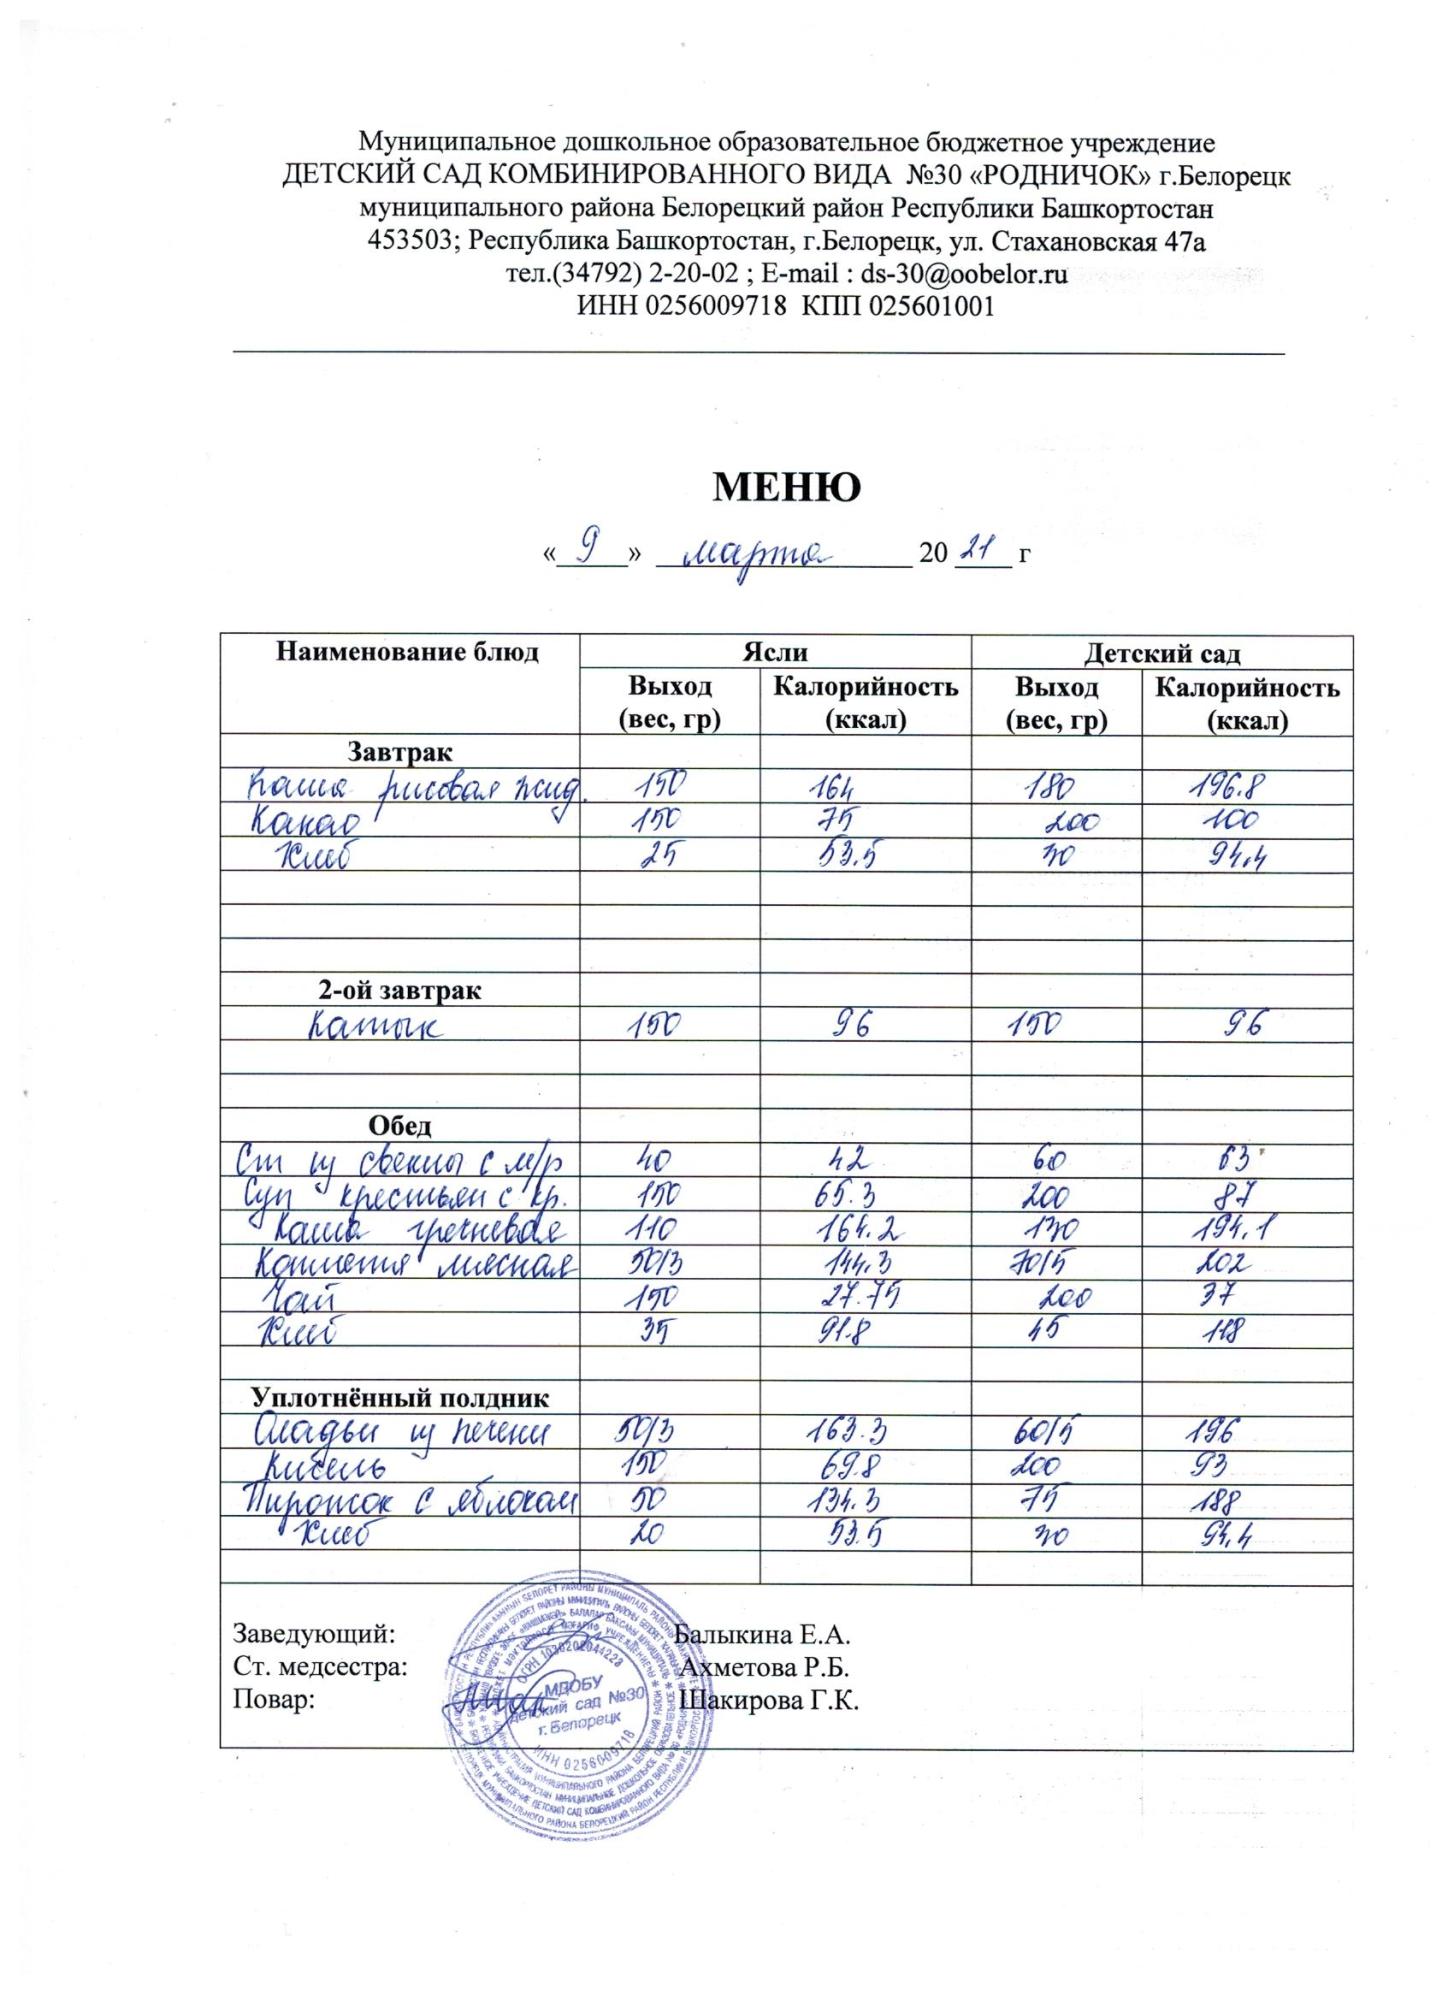 Муниципальное дошкольное образовательное бюджетное учреждение
ДЕТСКИЙ САД КОМБИНИРОВАННОГО ВИДА №30 «РОДНИЧОК» г.Белорецк
муниципального района Белорецкий район Республики Башкортостан
453503; Республика Башкортостан, г.Белорецк, ул. Стахановская 47а
тел.(34792) 2-20-02 ; E-mail : ds-30@oobelor.ru
ИНН 0256009718 КПП 025601001
МЕНЮ
« 9 » марта 20 21 г
Наименование блюд Ясли Детский сад
Выход (вес, гр) Калорийность (ккал) Выход (вес, гр) Калорийность (ккал)
Завтрак
Каша рисовая жид. 150 164 180 196.8
Какао 150 75 200 100
Хлеб 25 53.5 30 94,4
2-ой завтрак
Катык 150 96 150 96
Обед
Ст из свеклы с м/р 40 42 60 63
Суп крестьян с кр. 150 65.3 200 87
Каша гречневая 110 164.2 130 194,1
Котлета мясная 50/3 144,3 70/5 202
Чай 150 27.75 200 37
Хлеб 35 91.8 45 118
Уплотнённый полдник
Оладьи из печени 50/3 163.3 60/5 196
Кисель 150 69.8 200 93
Пирожок с яблоком 50 134.3 75 188
Хлеб 20 53.5 30 94,4
Заведующий: Балыкина Е.А.
Ст. медсестра: Ахметова Р.Б.
Повар: Шакирова Г.К.
МДОБУ
детский сад №30
г. Белорецк
ИНН 0256009718